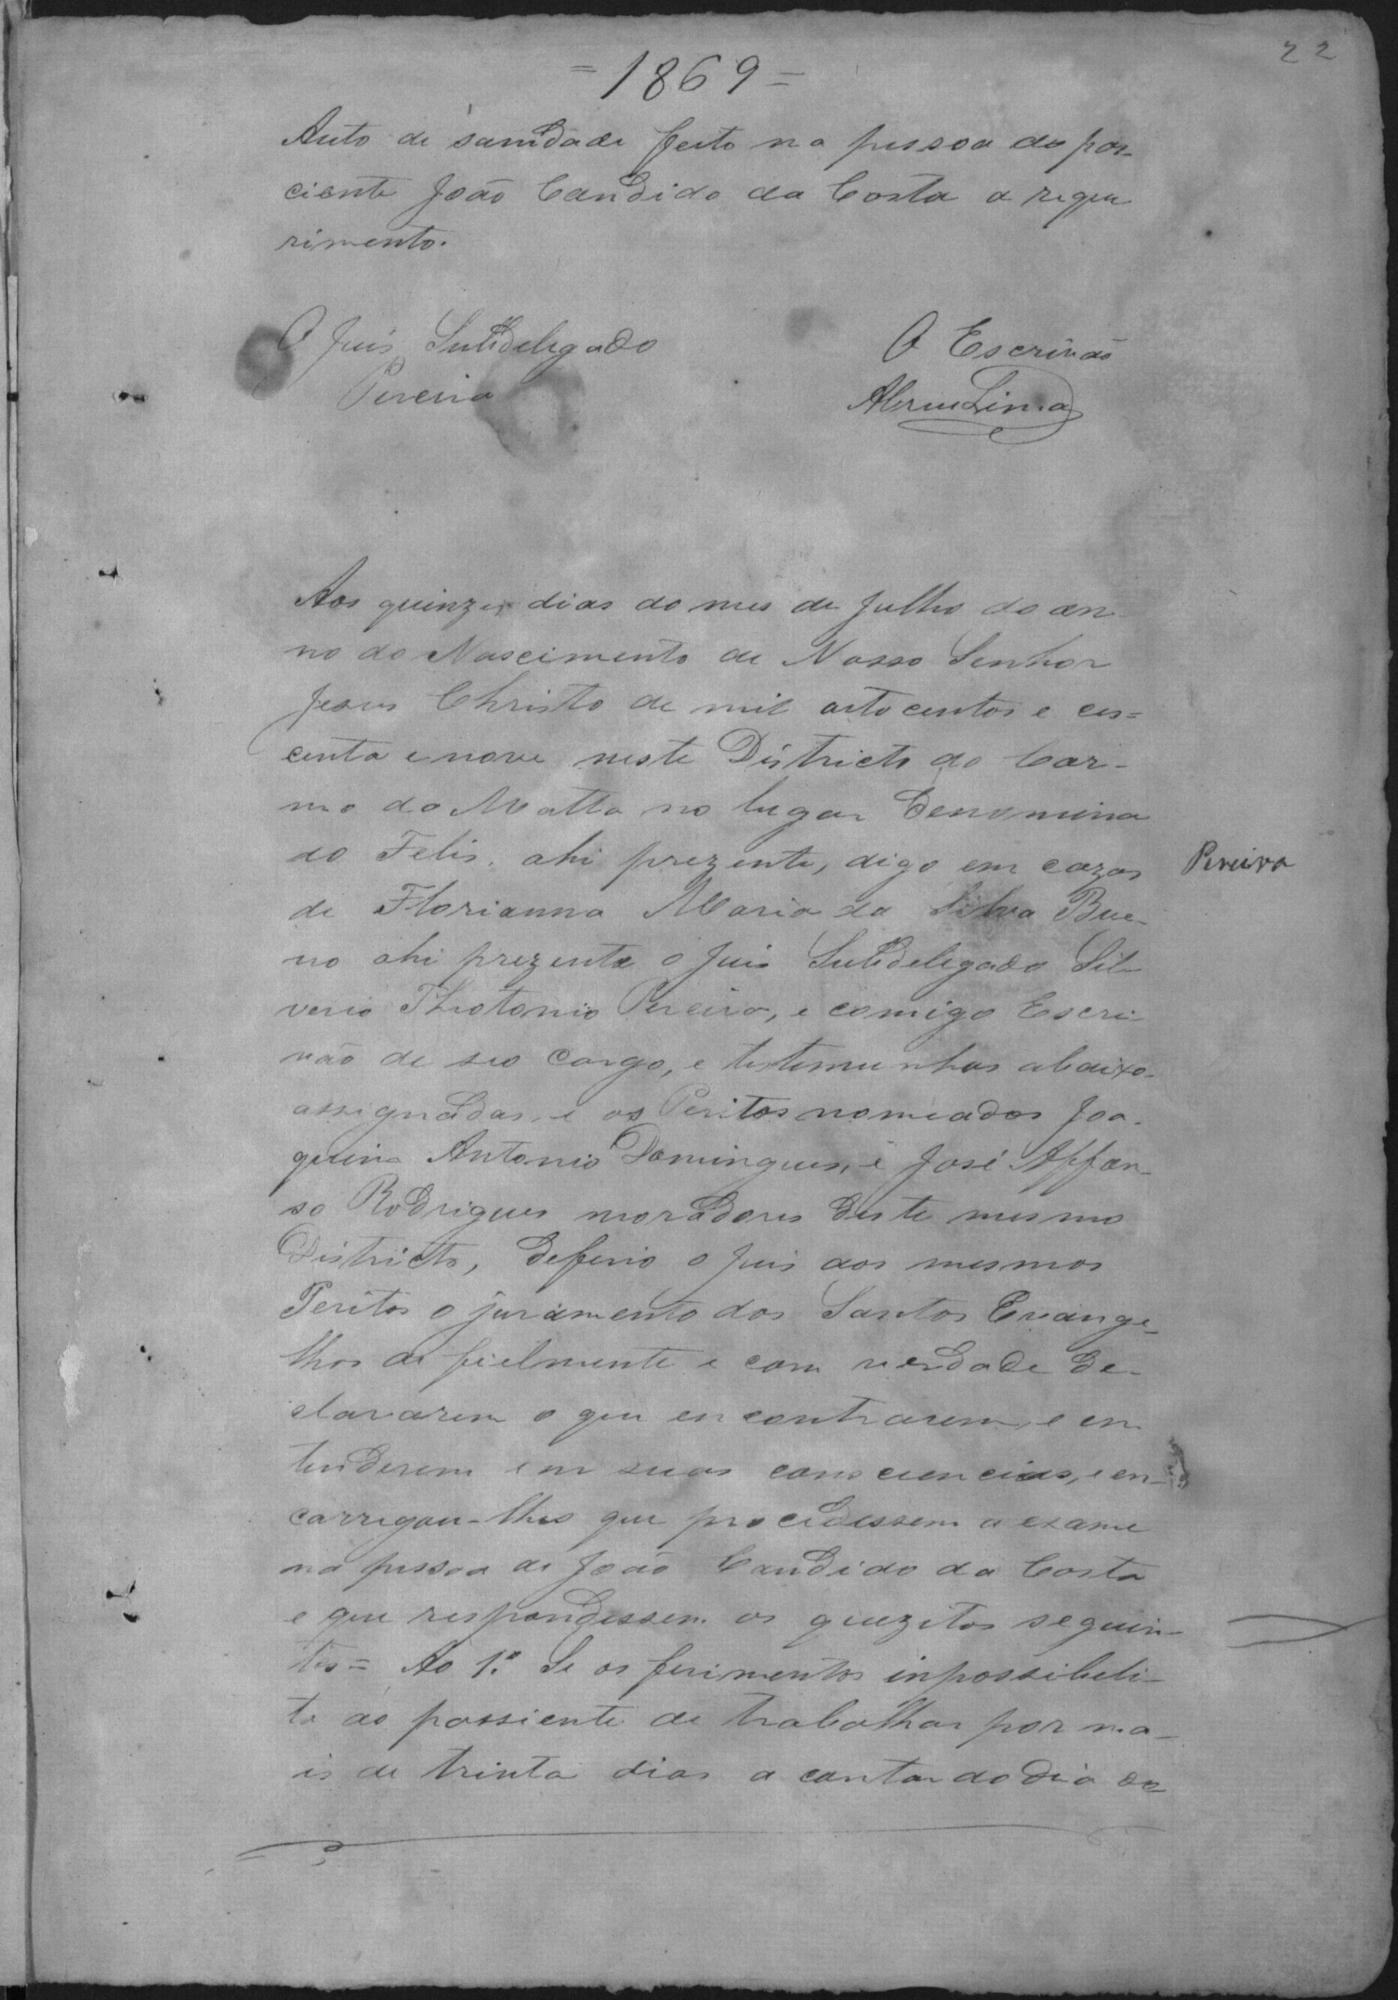 22
= 1869 =
Auto de sanidade feito na pessoa do pas-
ciente João Candido da Costa a reque
rimento.
O Juis Subdelegado
Pereira
O Escrivão
Abreu Lima
Aos quinze dias do mes de Julho do an-
no do Nascimento de Nosso Senhor
Jesus Christo de mil oitocentos e ces=
centa e nove neste Districto do Car-
mo da Matta no lugar denomina
do Felis. ahi prezente, digo em cazas
de Florianna Maria da Silva Bue-
no ahi prezente o Juis Subdelegado Sil
verio Theotonio Pereira, e comigo Escri
vão de seo cargo, e testemunhas abaixo-
assignadas, e os Peritos nomeados Joa-
quim Antonio Domingues, e José Affon-
so Rodrigues moradores deste mesmo
Districto, deferio o Juis aos mesmos
Peritos o juramento dos Santos Evange-
lhos de fielmente e com verdade de-
clararem o que encontrarem, e en
tenderem em suas consciencias, e en-
carregou-lhes que procedessem a exame
na pessoa de João Candido da Costa
e que respondessem os quezitos seguin-
tes = Ao 1.º Se os ferimentos inpossibeli-
ta ao passiente de trabalhar por ma-
is de trinta dias a contar do dia do
Pereira